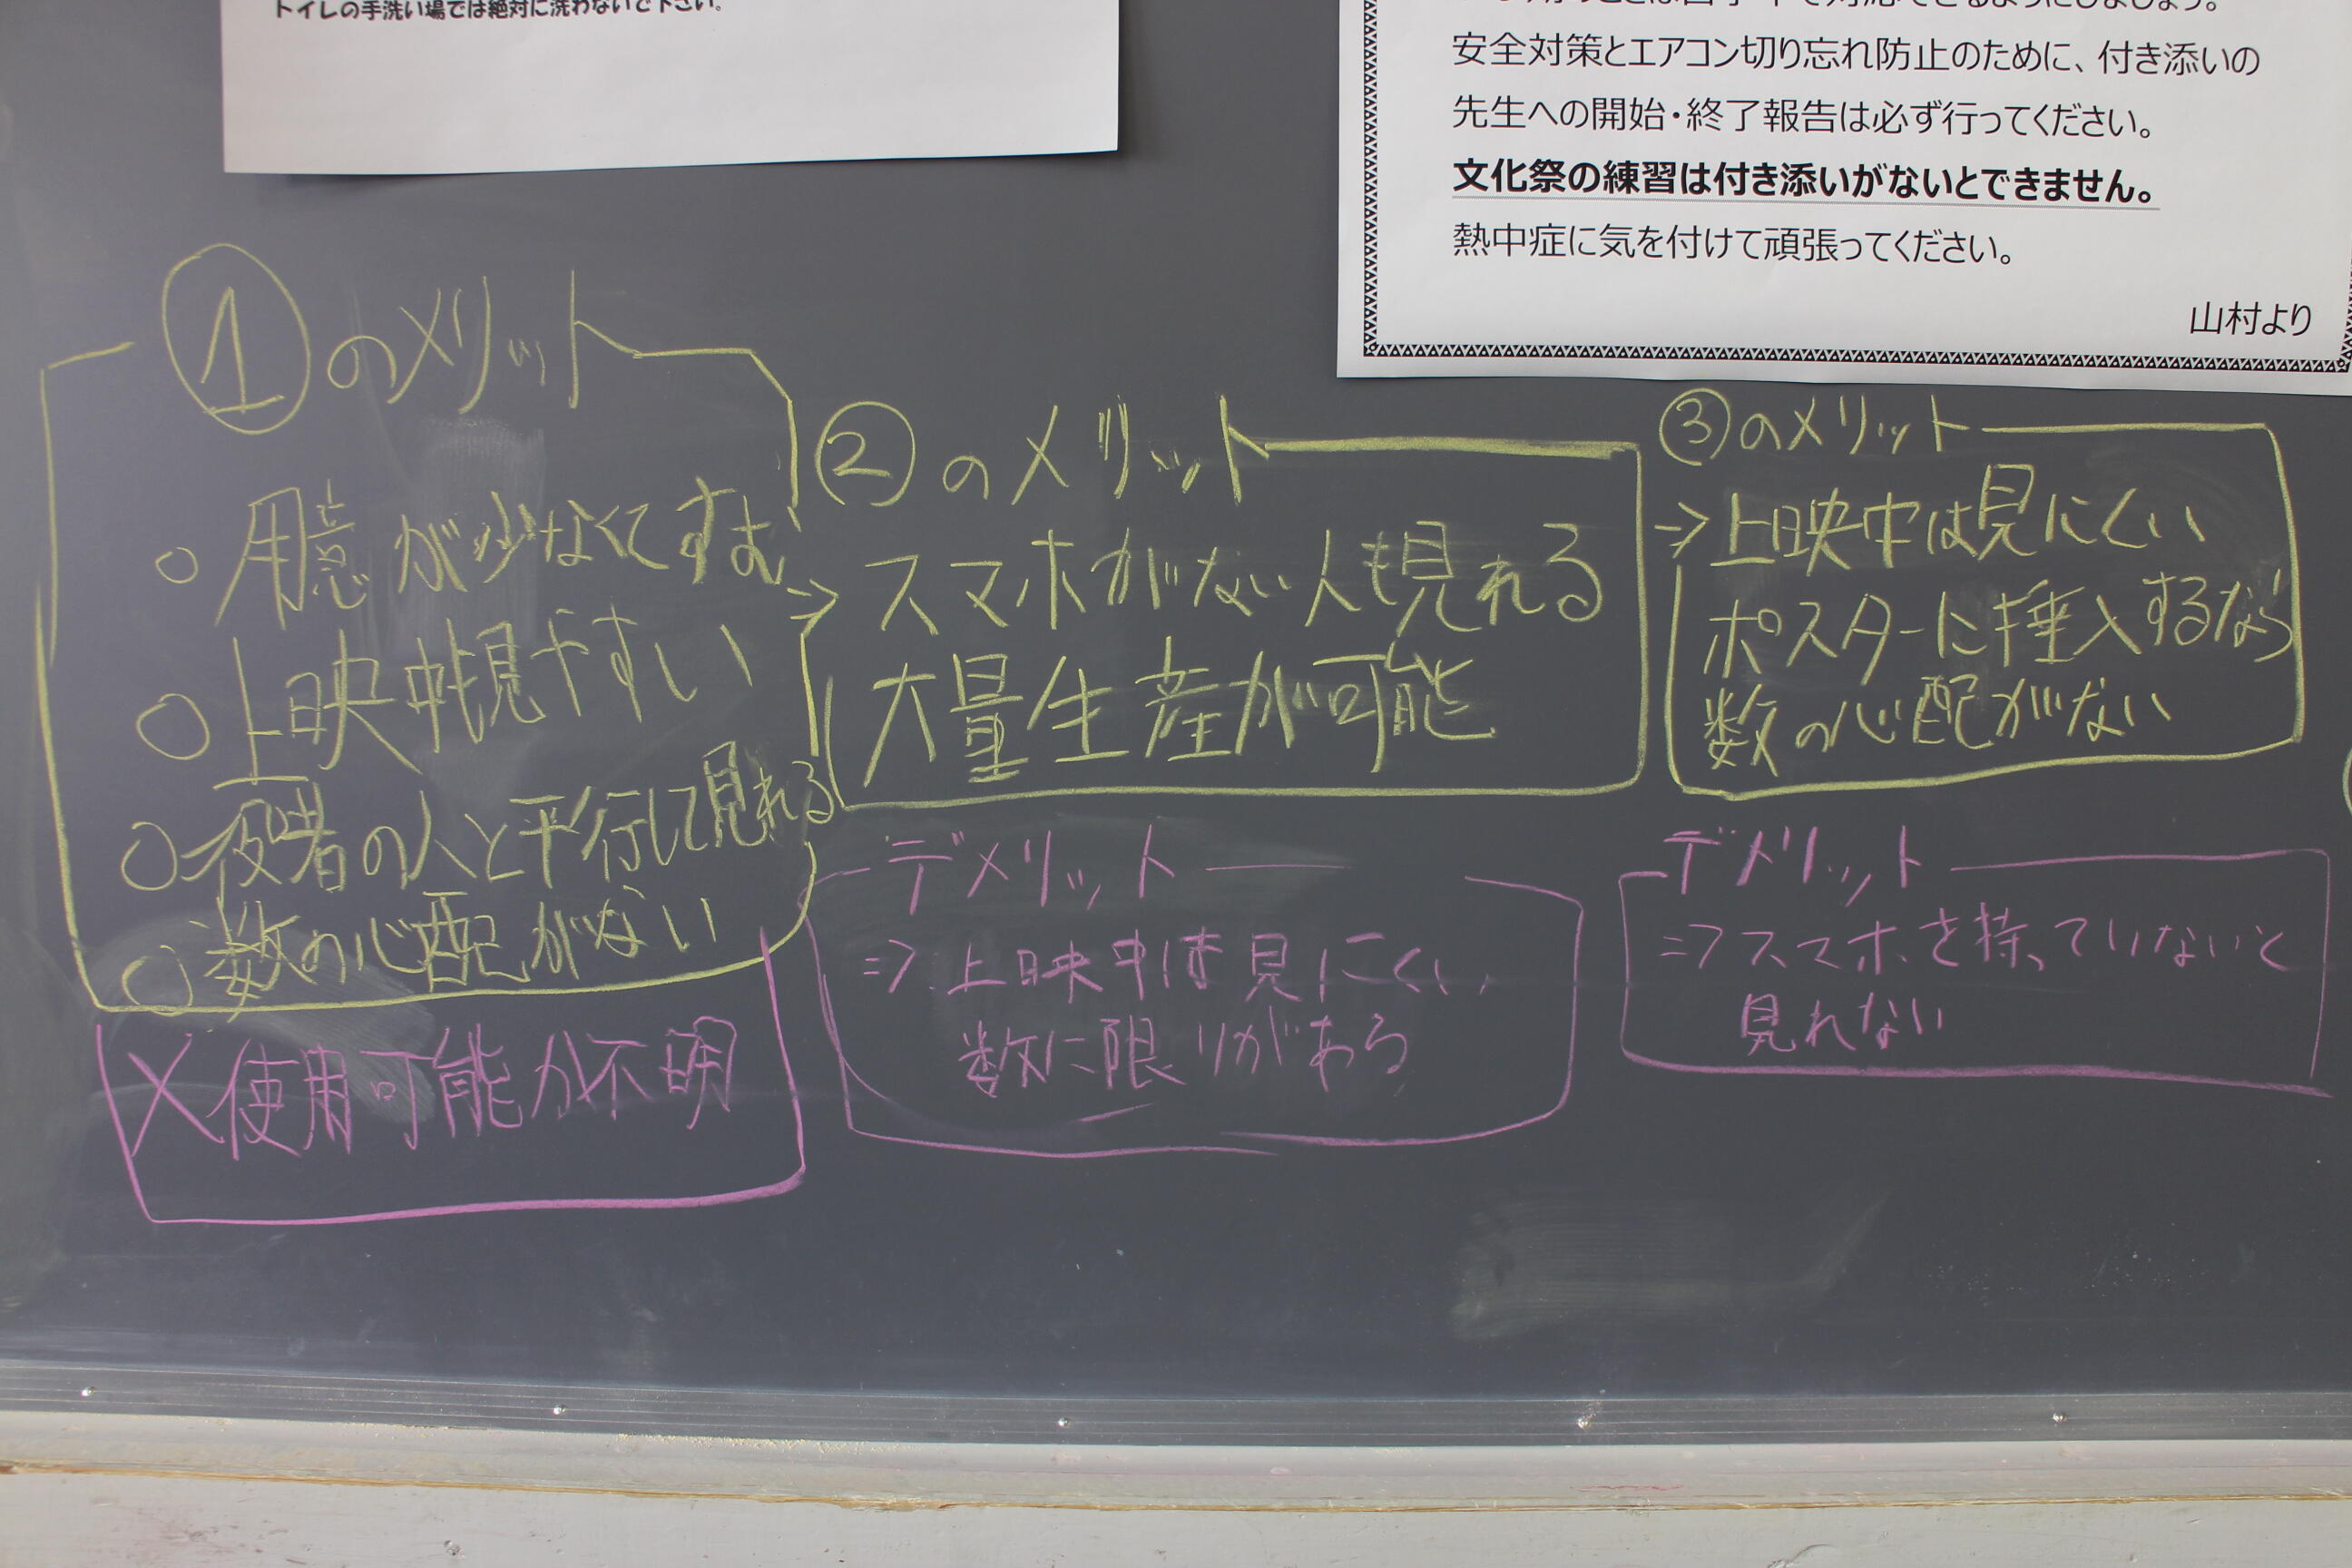 トイレの手洗い場では絶対に洗わないで下さい。
安全対策とエアコン切り忘れ防止のために、付き添いの
先生への開始・終了報告は必ず行ってください。
文化祭の練習は付き添いがないとできません。
熱中症に気を付けて頑張ってください。
山村より
①のメリット
○用意が少なくてすむ
○上映中も見やすい
○役者の人と平行して見れる
○数の心配がない
×使用可能か不明
②のメリット
⇒スマホがない人も見れる
大量生産が可能
デメリット
⇒上映中は見にくい
数に限りがある
③のメリット
⇒上映中は見にくい
ポスターに挿入するなら
数の心配がない
デメリット
⇒スマホを持っていないと
見れない